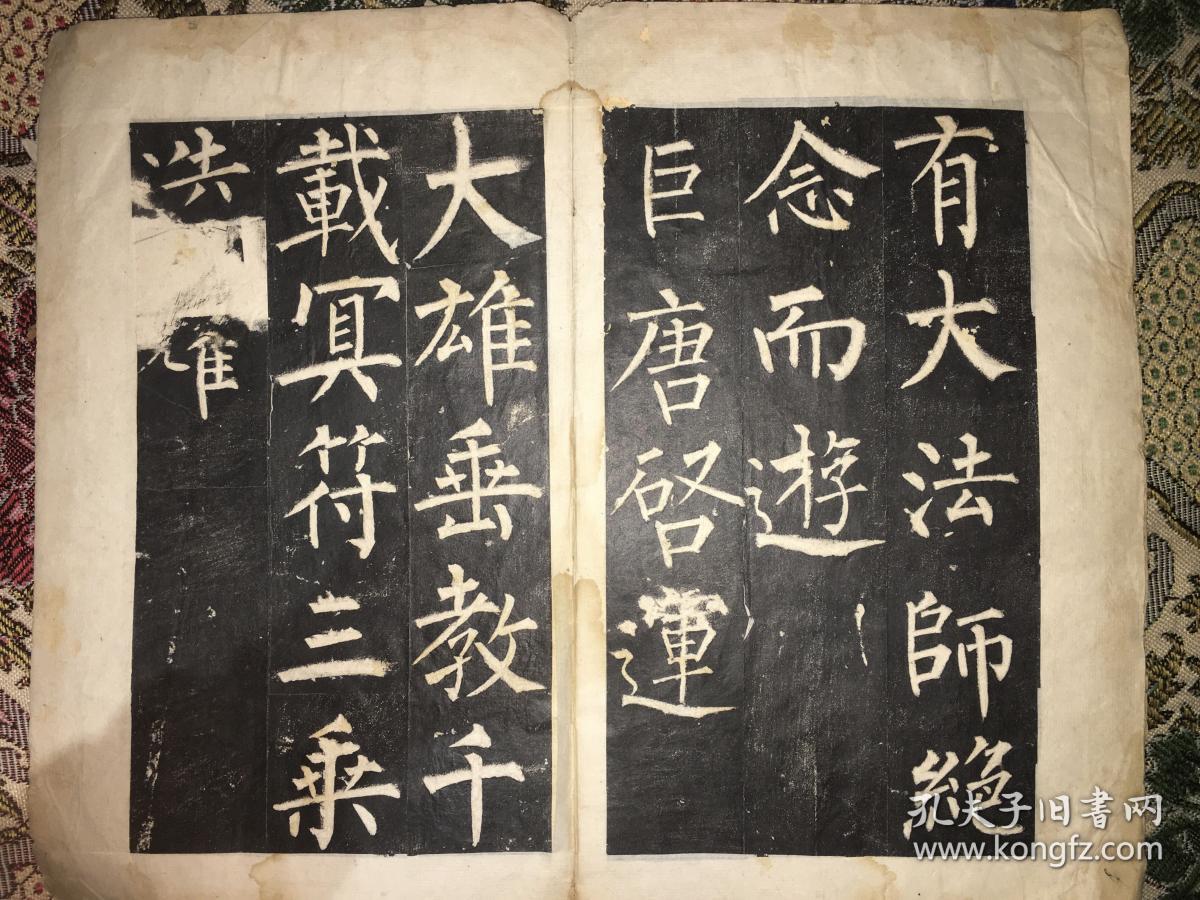 有大法師絕
念而遊
巨唐啓運
大雄垂教千
載冥符三乘
孔夫子旧書网
www.kongfz.com